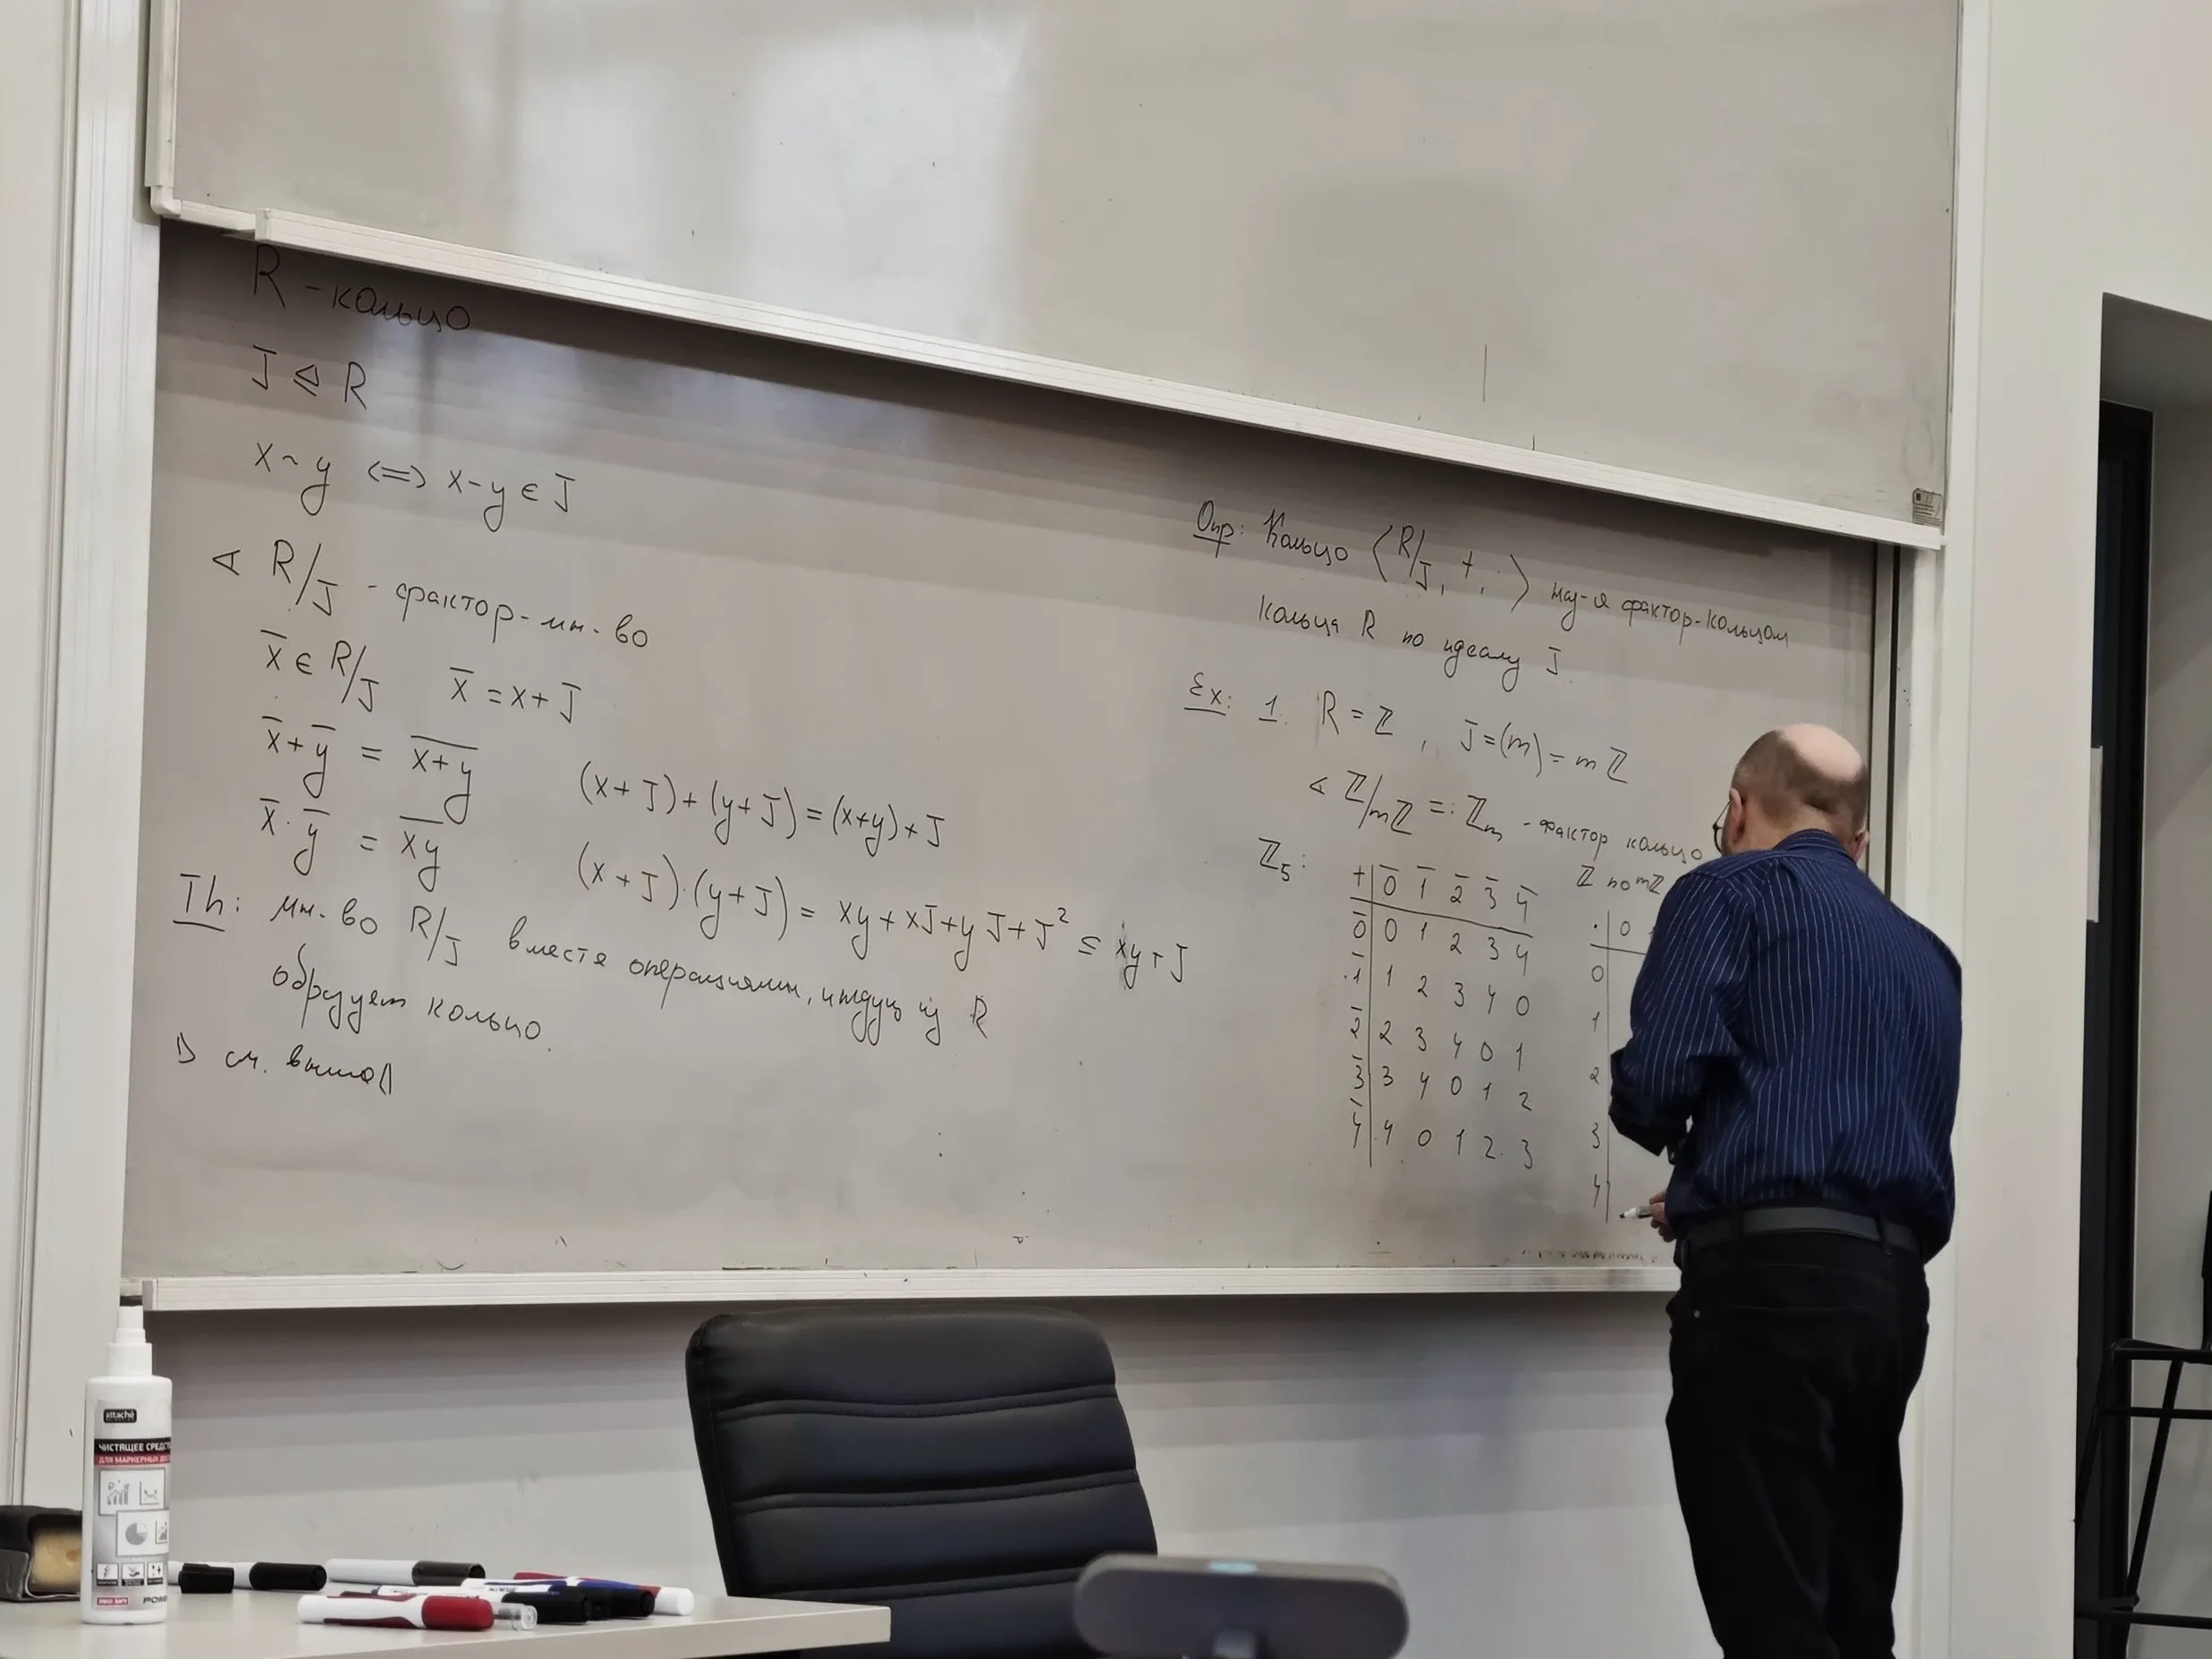 R - кольцо
J ⊴ R
x ~ y <=> x - y ∈ J
∢ R/J - фактор-мн-во
x̄ ∈ R/J x̄ = x + J
x̄ + ȳ = \overline{x+y} (x + J) + (y + J) = (x+y) + J
x̄ · ȳ = \overline{xy} (x + J)·(y + J) = xy + xJ + yJ + J² ⊆ xy + J
Th: мн-во R/J вместе операциями, индуц из R
образует кольцо.
▷ см. выше
Опр: Кольцо ⟨R/J, +, ·⟩ наз-я фактор-кольцом
кольца R по идеалу J.
Ex: 1. R = ℤ, J = (m) = mℤ
∢ ℤ/mℤ =: ℤₘ - фактор кольцо
ℤ по mℤ
ℤ₅:
+ 0̄ 1̄ 2̄ 3̄ 4̄
0̄ 0 1 2 3 4
1̄ 1 2 3 4 0
2̄ 2 3 4 0 1
3̄ 3 4 0 1 2
4̄ 4 0 1 2 3
· 0
0
1
2
3
4
attaché
ЧИСТЯЩЕЕ СРЕДС
ДЛЯ МАРКЕРНЫХ ДОС